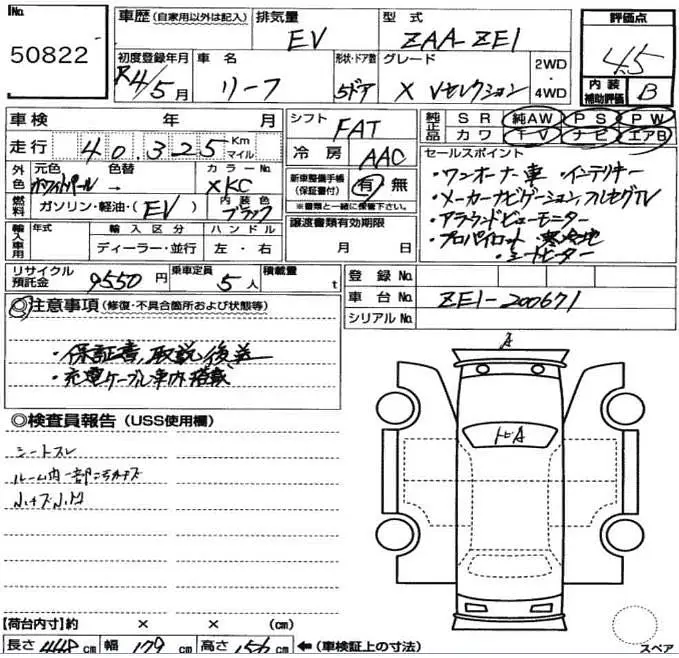 No.
50822
車歴 (自家用以外は記入)
排気量
EV
型式
ZAA-ZE1
評価点
4.5
初度登録年月
R4/5月
車名
リーフ
形状・ドア数
5ドア
グレード
X Vセレクション
2WD
・
4WD
内装
補助評価
B
車検 年 月
走行 40,325 Km マイル
シフト
FAT
冷房
AAC
純正品
SR 純AW PS PW
カワ TV ナビ エアB
外色
元色
ホワイトパール
色替
→
カラーNo.
XKC
燃料
ガソリン・軽油・(EV)
内装色
ブラック
新車整備手帳
(保証書付)
有・無
※書類と一緒に保管下さい。
セールスポイント
・ワンオーナー車 ・インテリキー
・メーカーナビゲーション, フルセグTV
・アラウンドビューモニター
・プロパイロット ・寒冷地
・シートヒーター
輸入車用
年式
輸入区分
ディーラー・並行
ハンドル
左・右
譲渡書類有効期限
月 日
リサイクル
預託金
9550円
乗車定員
5人
積載量
t
登録No.
車台No.
ZE1-200671
シリアルNo.
◎注意事項 (修復・不具合箇所および状態等)
・保証書, 取説後送
・充電ケーブル車内搭載
◎検査員報告 (USS使用欄)
シートスレ
ルーム内一部コゲキズ
小キズ小凹
A
トビA
【荷台内寸】約 × × (cm)
長さ 448cm 幅 179cm 高さ 156cm ←(車検証上の寸法)
スペア